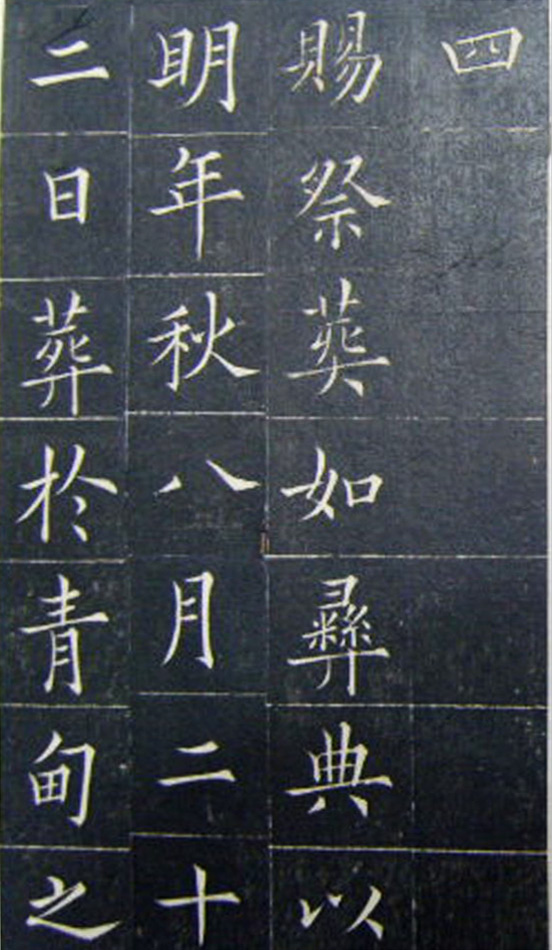 四
賜祭葬如彝典以
明年秋八月二十
二日葬於青甸之